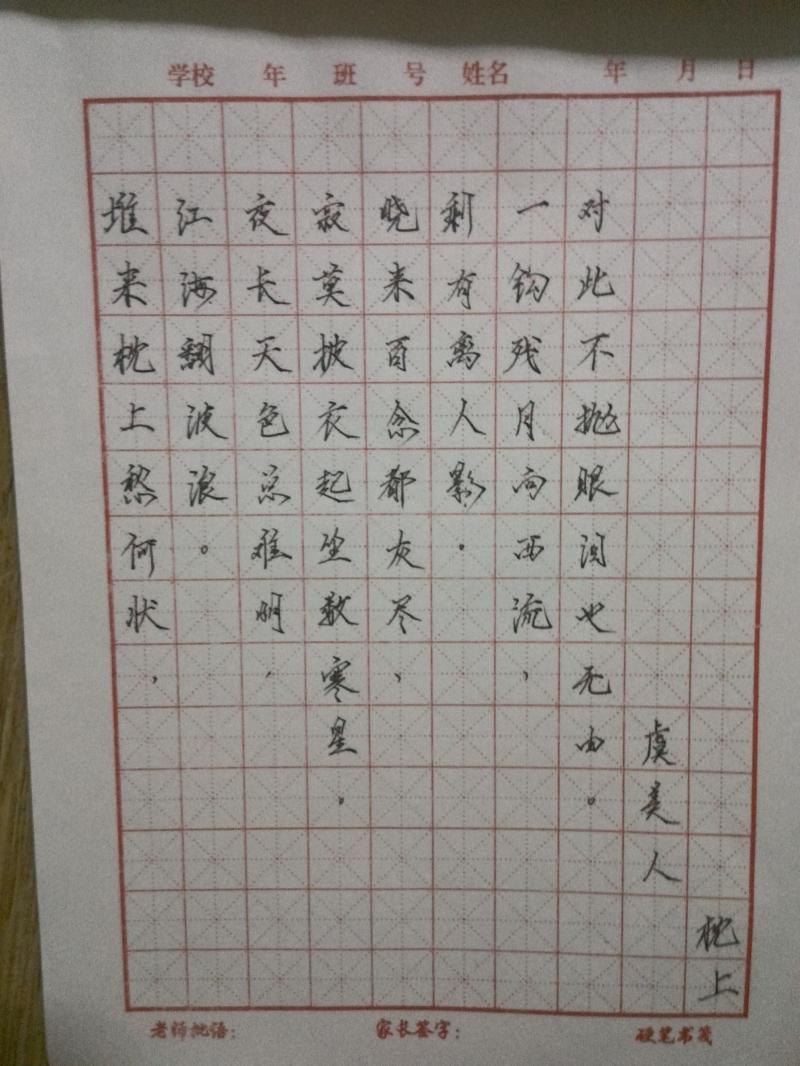 学校 年 班 号 姓名 年 月 日
堆来枕上愁何状，
江海翻波浪。
夜长天色总难明，
寂莫披衣起坐数寒星。
晓来百念都灰尽，
剩有离人影。
一钩残月向西流，
对此不抛眼泪也无由。
虞美人
枕上
老师批语： 家长签字： 硬笔书笺